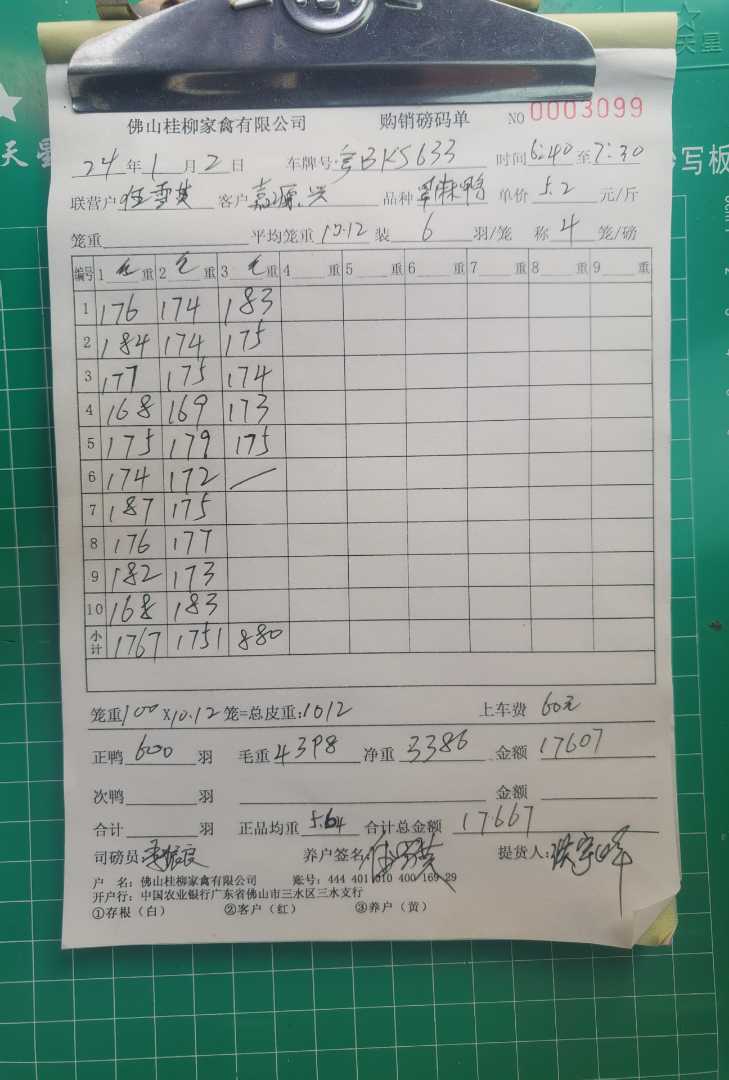 佛山桂柳家禽有限公司 购销磅码单 NO 0003099
24年1月2日 车牌号:粤BK5633 时间6:40至7:30
联营户 客户嘉源兴 品种 单价5.2元/斤
笼重 平均笼重10.12装6羽/笼 称4笼/磅
编号 1毛重 2毛重 3毛重 4重 5重 6重 7重 8重 9重
1 176 174 183
2 184 174 175
3 177 175 174
4 168 169 173
5 175 179 175
6 174 172 /
7 187 175
8 176 177
9 182 173
10 168 183
小计 1767 1751 880
笼重100×10.12笼=总皮重:1012 上车费 60元
正鸭600羽 毛重4398 净重3386 金额17607
次鸭 羽 金额
合计 羽 正品均重5.64 合计总金额17667
司磅员: 养户签名: 提货人:
户 名:佛山桂柳家禽有限公司 账号:444 401 010 400 169 29
开户行:中国农业银行广东省佛山市三水区三水支行
①存根(白) ②客户(红) ③养户(黄)
天星
天星
写板